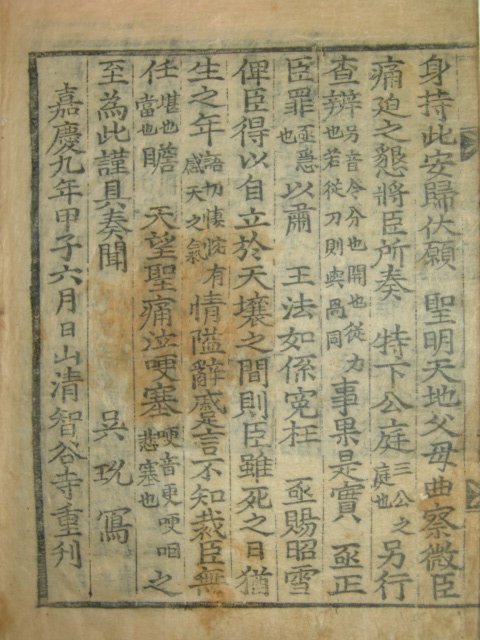 身持此安歸伏願 聖明天地父母曲察微臣
痛迫之懇將臣所奏 特下公庭三公之庭也另行
查辨另音令分也開也從力也若從刀則與咼同事果是實 亟正
臣罪亟急也以肅 王法如係冤枉 亟賜昭雪
俾臣得以自立於天壤之間則臣雖死之日猶
生之年語切悽惋有感天之氣情隘辭慼言不知裁臣無
任堪也當也瞻 天望聖痛泣哽塞哽音更哽咽悲塞也之
至為此謹具奏聞 吳玧寫
嘉慶九年甲子六月日山清智谷寺重刊